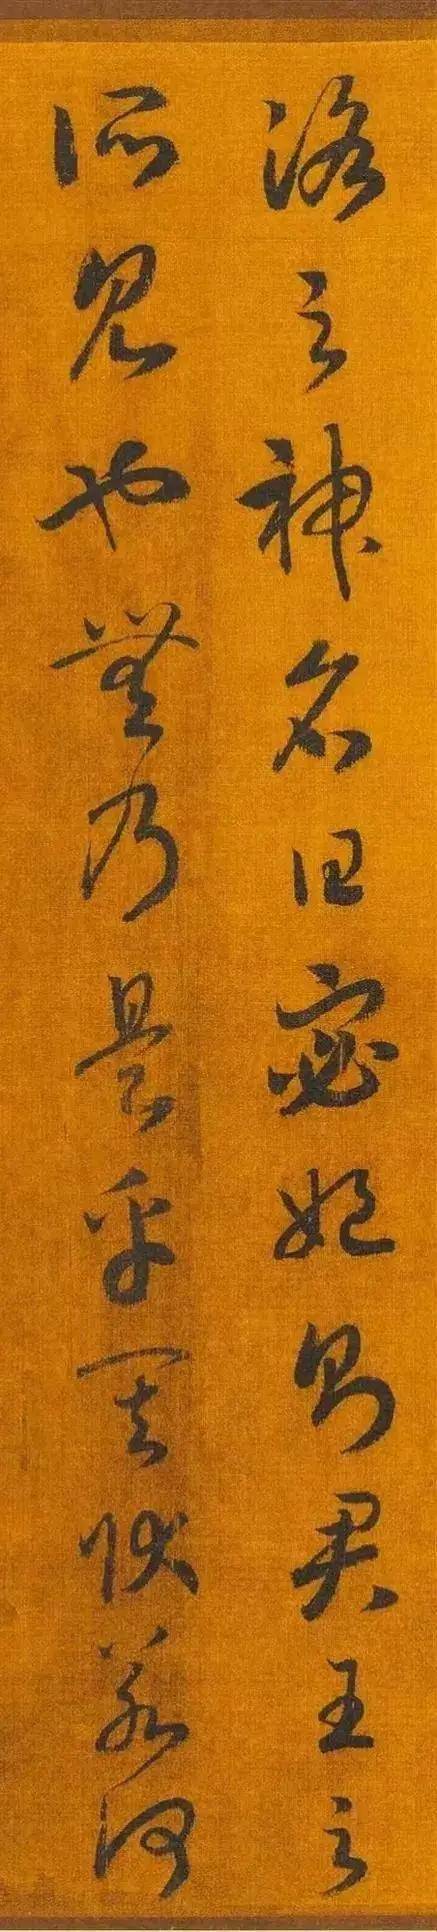 洛之神名曰宓妃則君王之
所見也無乃是乎其狀若何